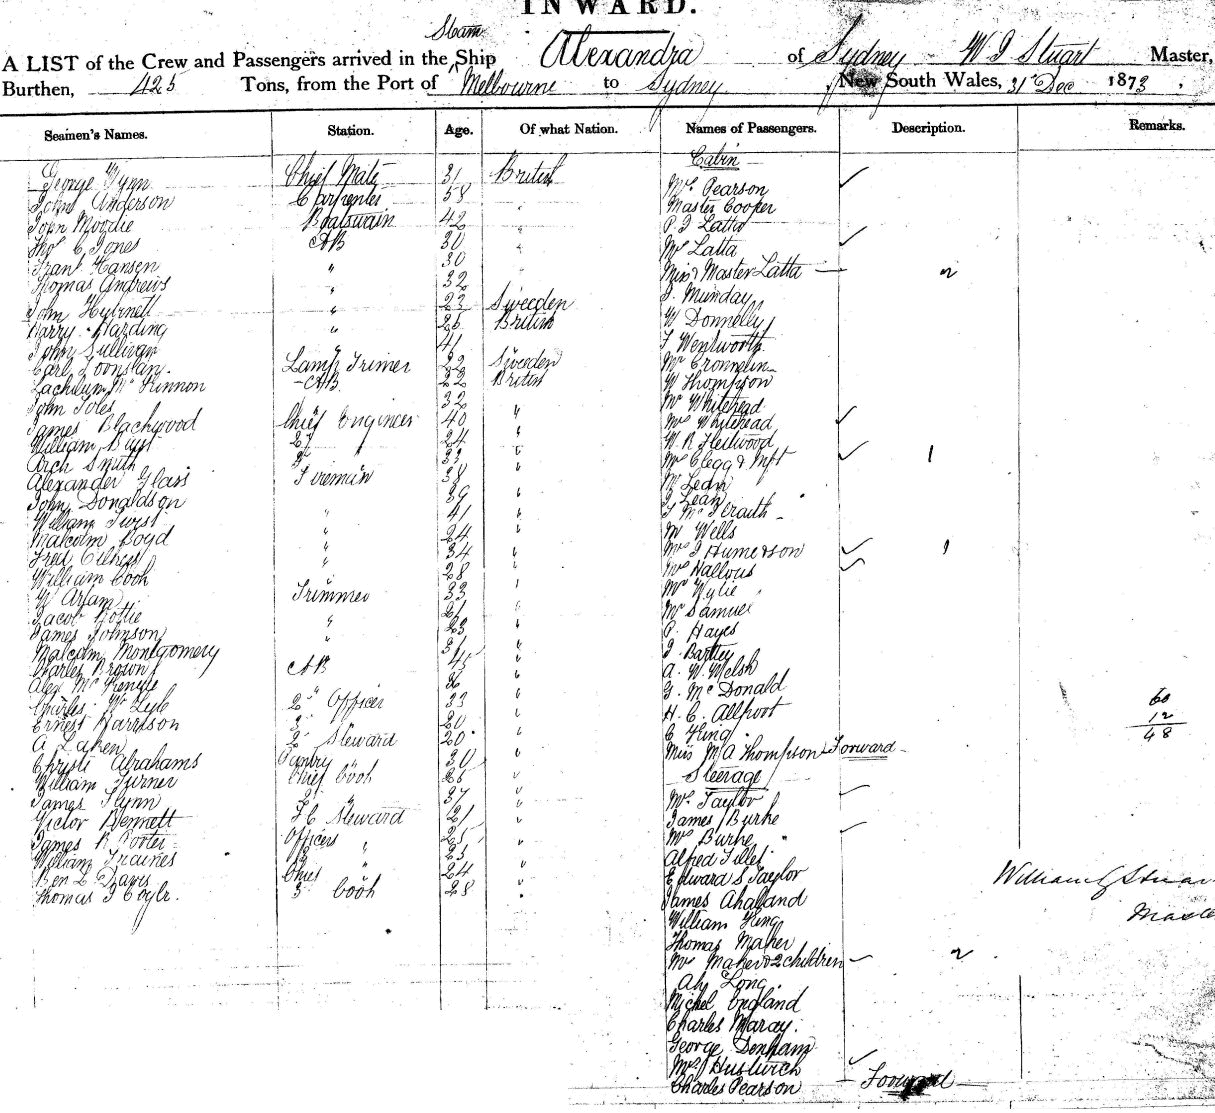 INWARD.
Steam
A LIST of the Crew and Passengers arrived in the Ship Alexandra of Sydney W J Stuart Master,
Burthen, 425 Tons, from the Port of Melbourne to Sydney, New South Wales, 31st Dec 1873,
Seamen's Names. Station. Age. Of what Nation. Names of Passengers. Description. Remarks.
Cabin
George Flynn Chief Mate 31 British
John Anderson Carpenter 58 "
John Moodie Boatswain 42 "
Thos C Jones AB 30 "
Franz Hansen " 30
Thomas Andrews " 32
John " 23 Sweeden
Harry Harding " 25 British
John Sullivan " 41
Carl Lamp Trimer 22 Sweden
Lachlum McKinnon AB 22 British
John Toles 32
James Blackwood Chief Engineer 40 "
William 2d " 24 "
Arch Smith 3d " 33 "
Alexander Glass Fireman 38 "
John Donaldson 39 "
William " 41 "
Malcolm Boyd " 24 "
Fred " 34 "
William Cook " 28 "
W Trimmer 33 "
Jacob " 21 "
James Johnson " 23 "
Malcolm Montgomery 31 "
Charles Brown AB 45 "
Alex
Charles W 2nd Officer 33 "
Ernest Harrison 3d " 20 "
A 2d Steward 20 "
Christi Abrahams Pantry " 30 "
William Turner Chief Cook 25 "
James Flynn 2 " 37 "
Victor Bennett F C Steward 21 "
James R Porter Officers " 25 "
William Traines 25 "
Ben L Davis Chief 24 "
Thomas J 3d Cook 28 "
Mrs Pearson
Master Cooper
P J Latta
Mrs Latta
Miss & Master Latta 2
J. Munday
W Donnelly
F Wentworth
Mr
W Thompson
Mr Whitehead
Mrs Whitehead
W R Fleetwood
Mrs Clegg & Inft 1
Mr Lean
J Lean
J Mc
Mr Wells
Mrs J Hume & son 1
Mrs
Mr Wylie
Mr Samuel
P. Hayes
J. Bartley
A. W. Welsh
G. McDonald
H. C. Allport
C King
Miss M A Thompson Forward
60
12
48
Steerage
Mrs Taylor
James Burke
Mrs Burke
Alfred
Edward S Taylor
James
William King
Thomas Maher
Mrs Maher & 2 children 2
Ah Long.
Michel England
Charles Maray.
George Denham
Mrs
Charles Pearson Forward
William J Stuar
Maste